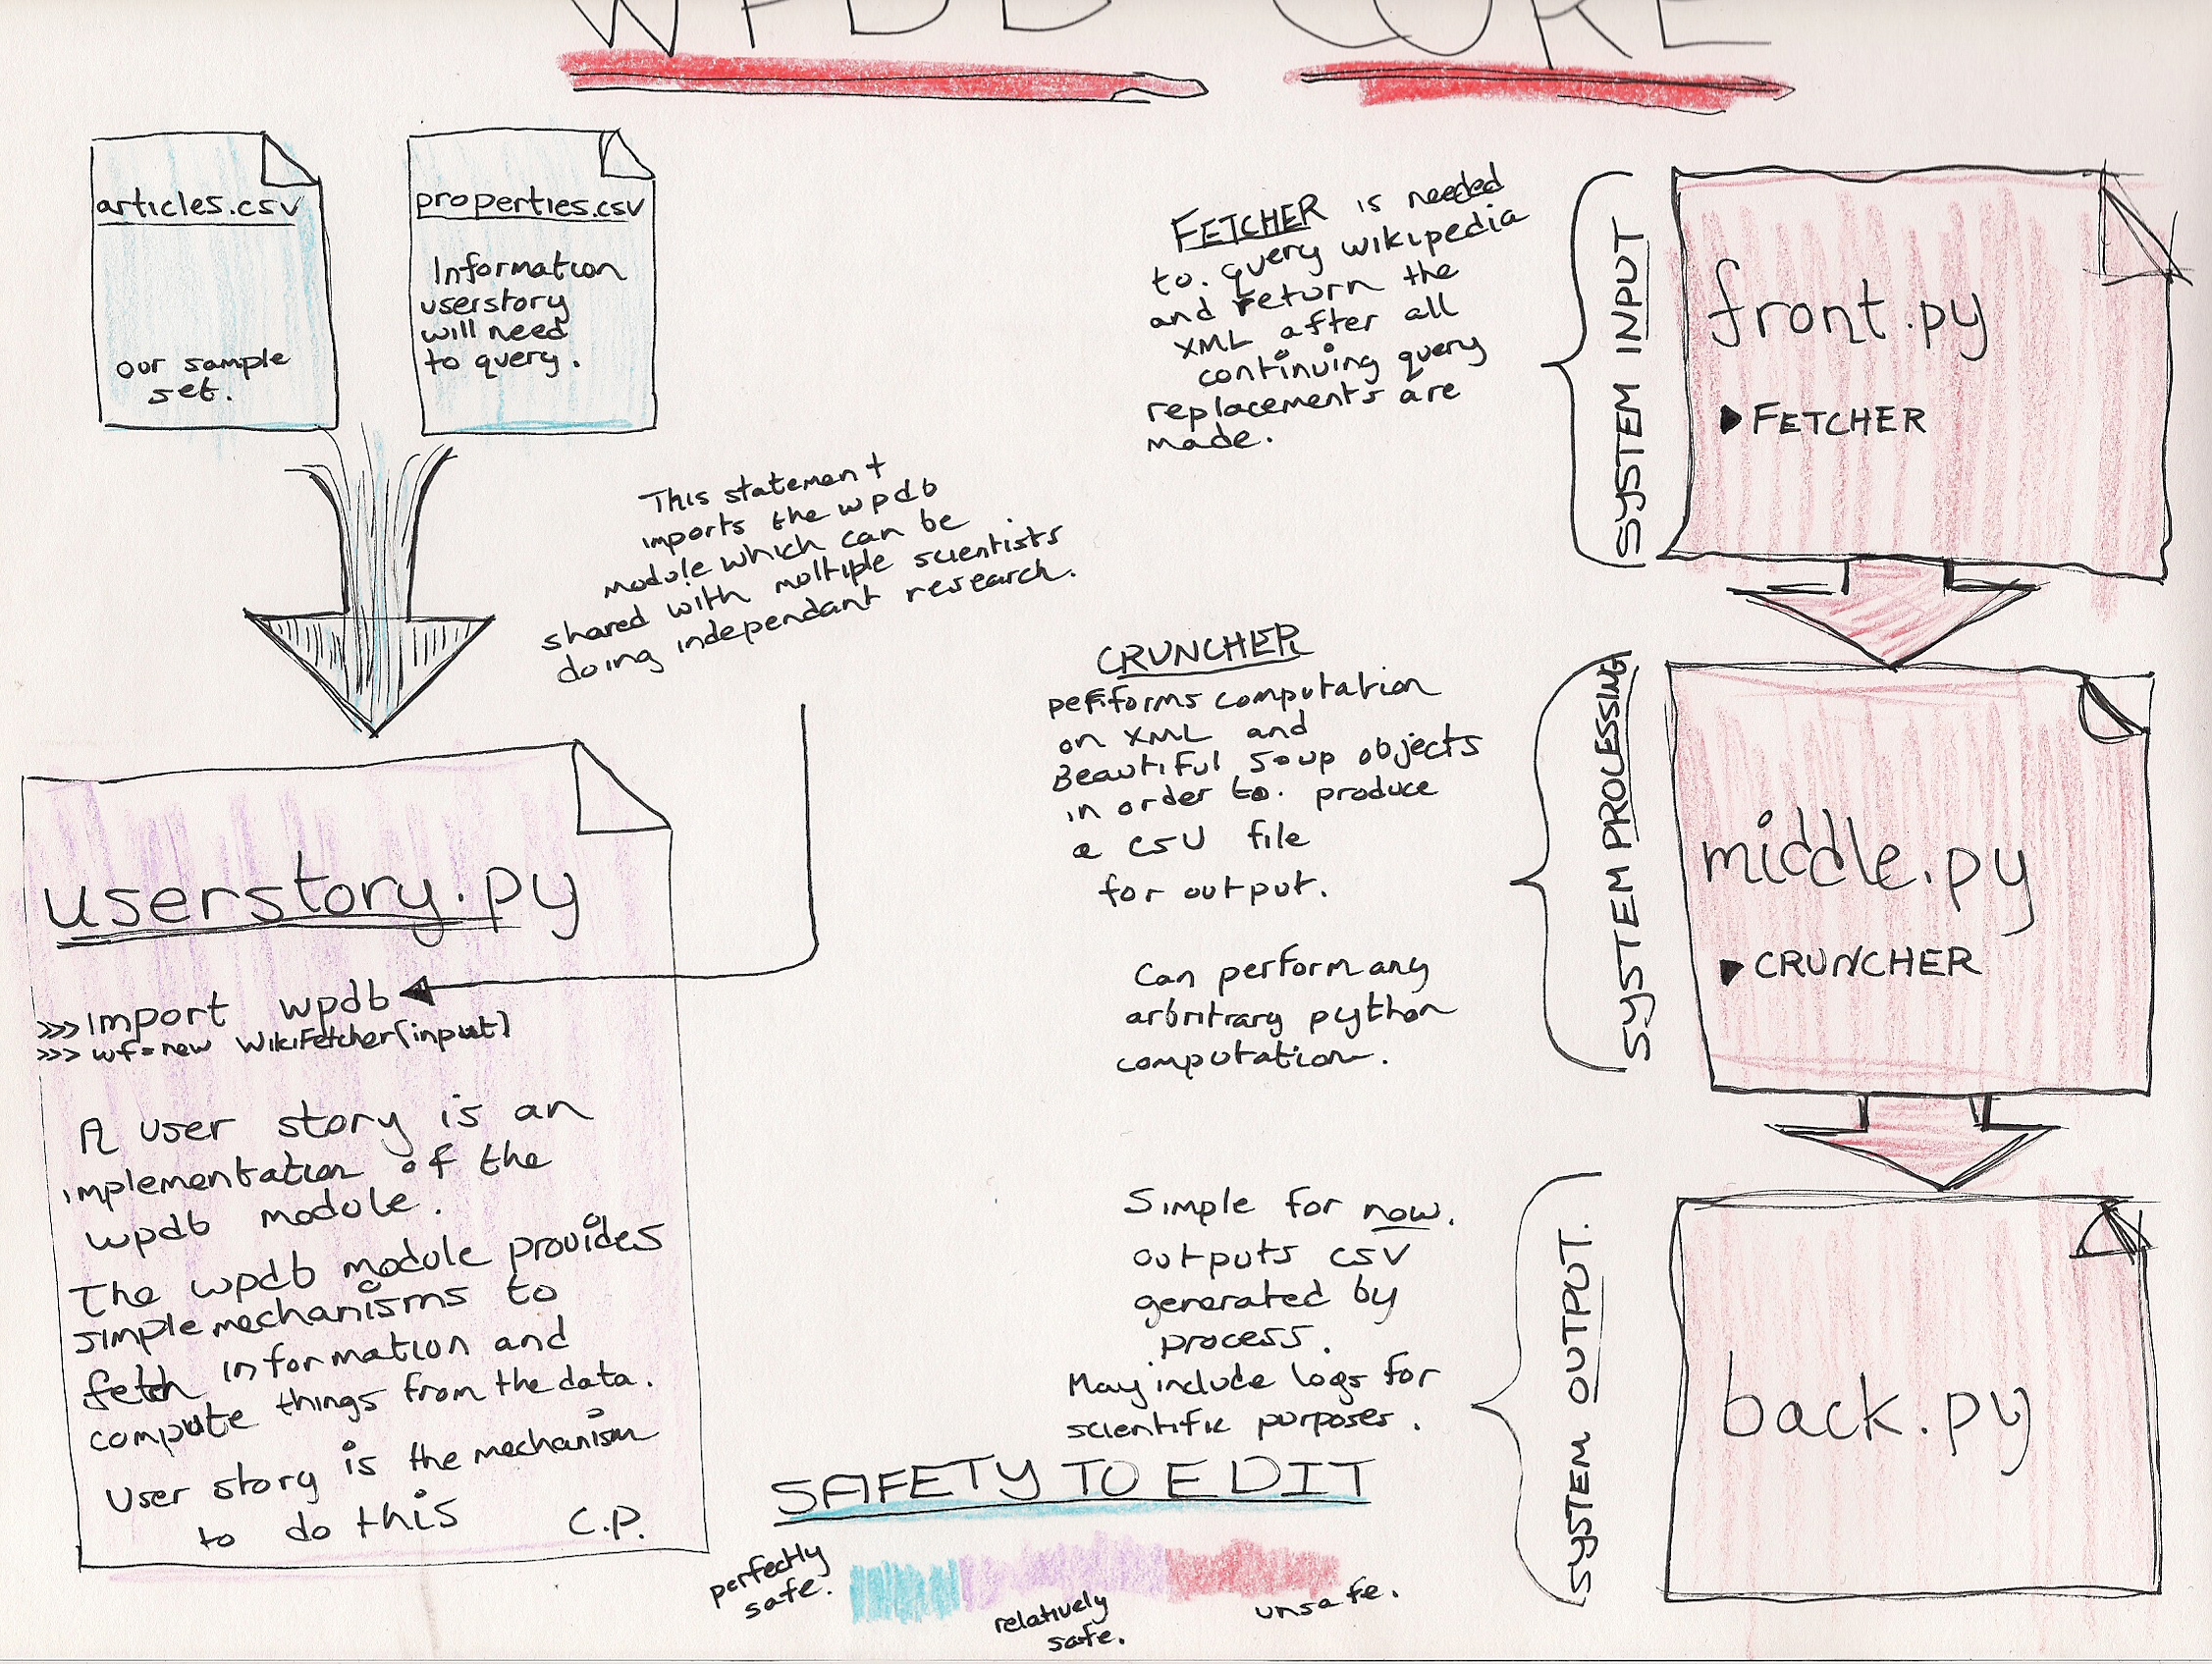 WPDB CORE
articles.csv
our sample
set.
properties.csv
Information
userstory
will need
to query.
This statement
imports the wpdb
module which can be
shared with moltiple scientists
doing independant research.
userstory.py
>>> import wpdb
>>> wf = new WikiFetcher(input)
A user story is an
implementation of the
wpdb module.
The wpdb module provides
simple mechanisms to
fetch information and
compute things from the data.
User story is the mechanism
to do this
C.P.
FETCHER is needed
to. query wikipedia
and return the
XML after all
continuing query
replacements are
made.
SYSTEM INPUT
front.py
▶ FETCHER
CRUNCHER
performs computation
on XML and
Beautiful Soup objects
in order to. produce
a CSV file
for output.
Can perform any
arbritrary python
computation.
SYSTEM PROCESSING
middle.py
▶ CRUNCHER
Simple for now.
outputs csv
generated by
process.
May include logs for
scientific purposes.
SYSTEM OUTPUT.
back.py
SAFETY TO EDIT
perfectly
safe.
relatively
safe.
unsafe.